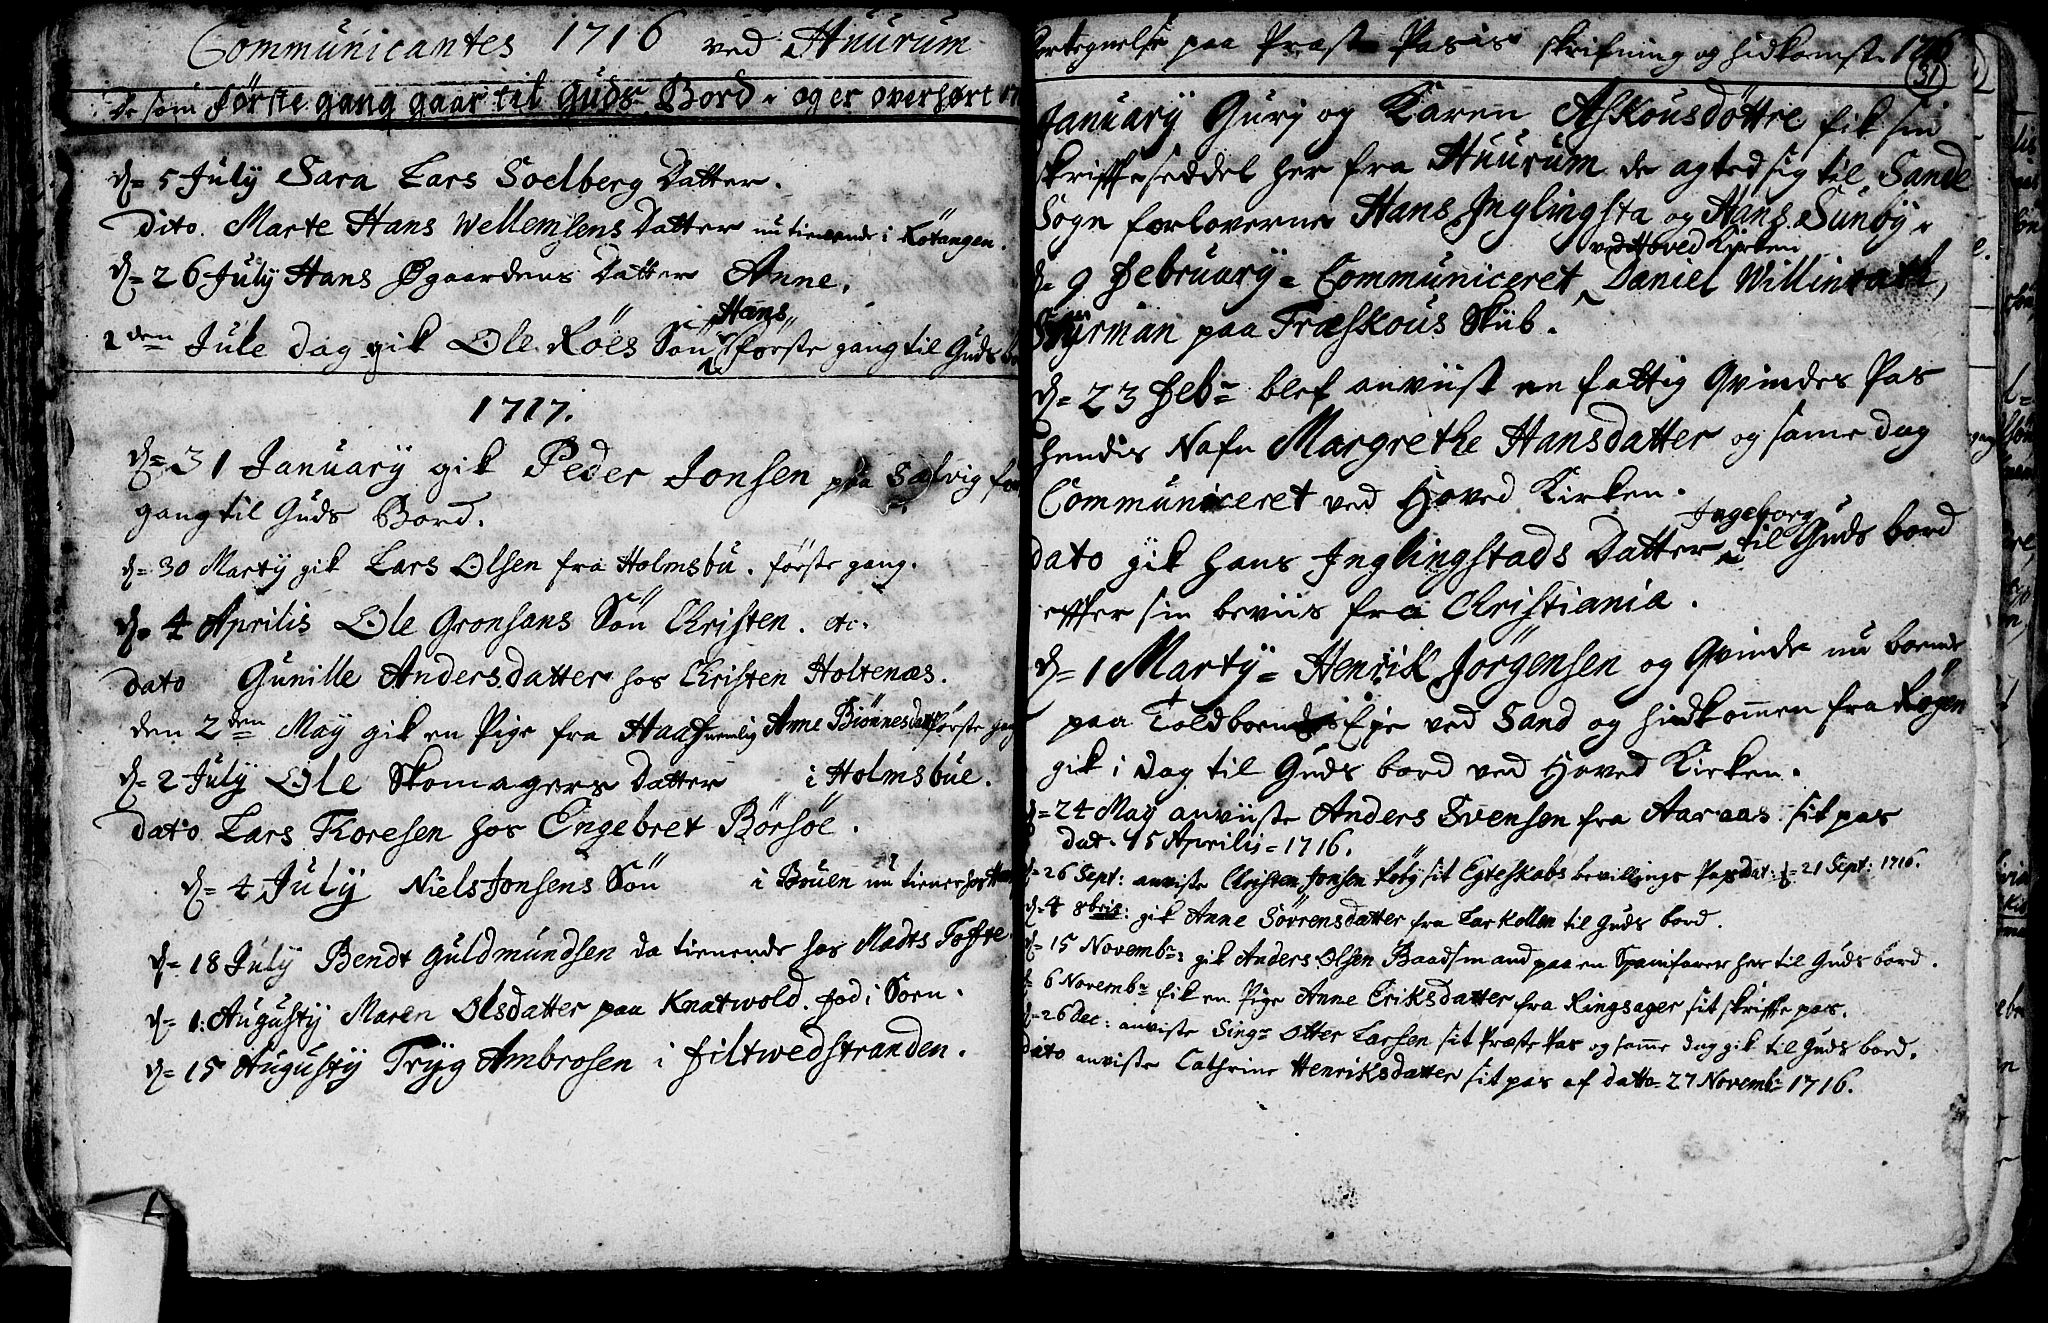 Communicantes 1716 ved Huurum
De som første gang gaar til Guds Bord. og er overhørt 17
d= 5 July Sara Lars Soelberg Datter.
Dito. Marte Hans Wellemsens Datter nu tienende i Røtangen.
d= 26 July Hans Øgaardens Datter Anne.
Hans
2den Jule dag gik Ole Röes Sön första gang til Guds bo
1717.
d= 31 January gik Peder Jonsen paa Sætvig før
gang til Guds Bord.
d= 30 Marty gik Lars Olsen fra Holmsbu. første gang.
d= 4 Aprilis Ole Gronsans Sön Christen. etc.
dato Gunille Andersdatter hos Christen Holtenæs.
den 2den May gik en Pige fra Haaf nemlig Anne Biønnesdatt første gang
d= 2 July Ole Skomagers Datter i Holmsbue.
dato Lars Toresen hos Engebret Börsöe.
d= 4 July Niels Jonsens Sön i Bruen nu tiener hos Han
d= 18 July Bendt Guldmundsen da tienende hos Madts Tofte.
d= 1: Augusty Maren Olsdatter paa Knatwold. fod i Soen.
d= 15 Augusty Tryg Ambrosen i Filtwedstranden.
Fortegnelse paa Præste Passis skrifning og hidkomst 1716
31
January Guri og Karen Askousdöttre fik sin
skriffteseddel her fra Huurum de agted sig til Sande
Sogn forloverne Hans Inglingsta og Hans Sunby.
ved Hoved Kirken
d= 9 February= Communiceret Daniel Willinrath,
Styrman paa Træskous Skib.
d= 23 Feb= blef anviist en fattig Qvindes Pas
hendis Nafn Margrethe Hansdatter og same dag
Communiceret ved Hoved Kirken.
Ingeborg
dato gik Hans Inglingstads Datter til Guds bord
effter sin beviis fra Christiania.
d= 1 Marty= Henrik Jörgensen og Qvinde nu boende
paa Toldboens Eje ved Sand og hidkommen fra Røgen
gik i dag til Guds bord ved Hoved Kirken.
d= 24 May anviiste Anders Svensen fra Aaraas sit pas
dat. 15 Aprilis= 1716.
d= 26 Sept: anviste Christen Jonsen Röby sit Egteskabs bevillings Pas dat: d= 21 Sept: 1716.
d= 4 8bris: gik Anne Sörrensdatter fra Larkollen til Guds bord.
d= 15 Novemb=: gik Anders Olsen Baadsmand paa en Spanifarer her til Guds bord.
d= 6 Novemb= fik en Pige Anne Eriksdatter fra Ringsager sit skriffte pas.
d= 26 Dec: anviste Sing= Otter Larsen sit Præste Pas og samme dag gik til Guds bord.
dato anviste Cathrine Henriksdatter sit pas af datto= 27 Novemb= 1716.